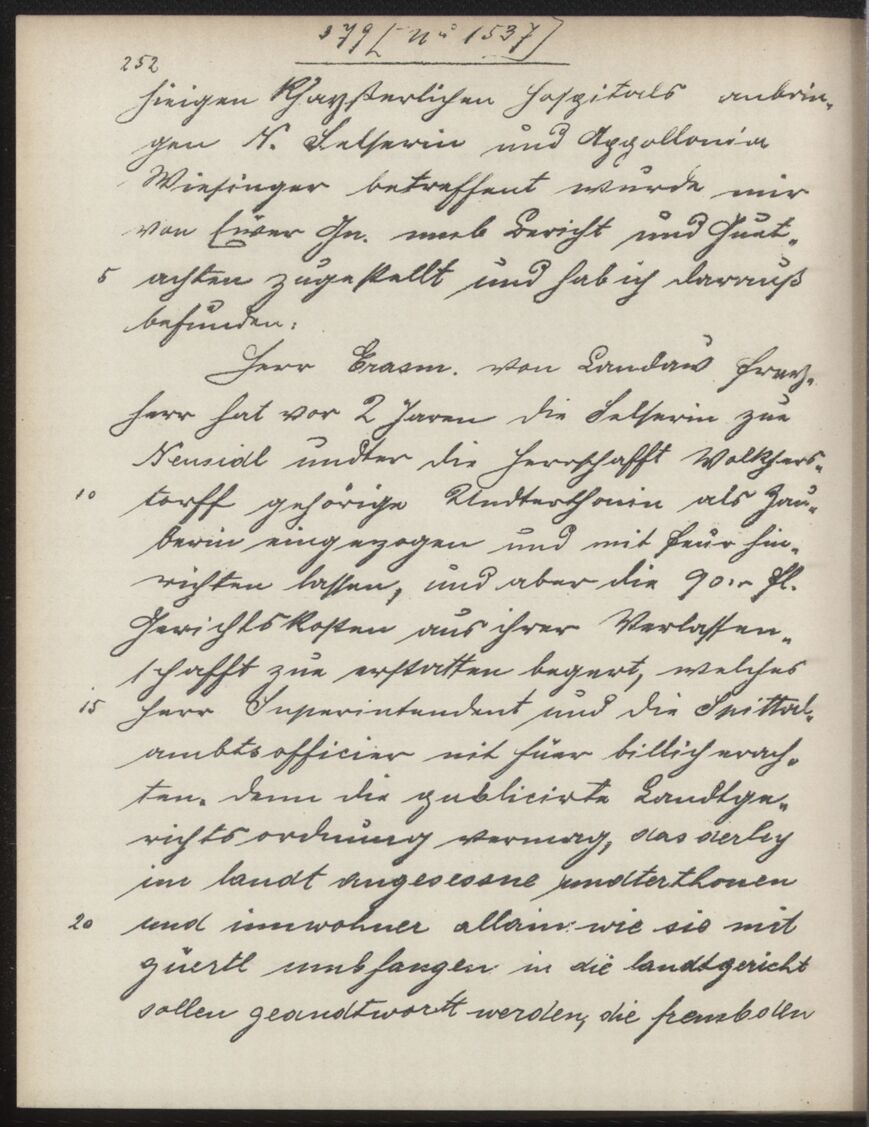 379 [Nº 1537]
252
hieigen Khayßerlichen Hospitals anbrin-
gen N. Selserin und Appollonia
Wiesinger betreffent wurde mir
von Euer Gn. umb Bericht und Guet-
5 achten zugestellt und hab ich darauß
befunden:
Herr Erasm. von Landaw Frey-
herr hat vor 2 Jaren die Selserin zue
Neusidl undter die Herrschafft Wolkhers-
10 torff gehörige Undterthonin als Zau-
berin eingezogen und mit feur hin-
richten lassen, und aber die 90.- fl.
Gerichtskosten aus ihrer Verlassen-
schafft zue erstatten begert, welches
15 Herr Superintendent und die Spittal-
ambtsofficier nit füer billich erach-
ten. denn die publicirte Landtge-
richtsordnung vermag, das derley
im landt angesessne undterthonen
20 und innwohner allain wie sie mit
güertl umbfangen in die landtgericht
sollen geandtwortt werden, die frembden